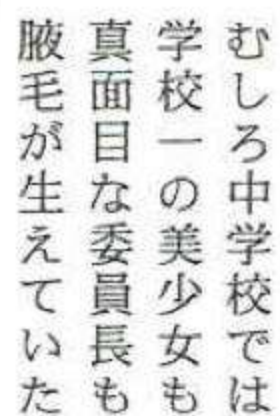 むしろ中学校では
学校一の美少女も
真面目な委員長も
腋毛が生えていた